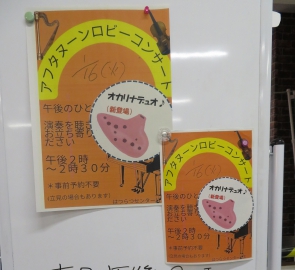 アフタヌーンロビーコンサート
1/16(火)
オカリナデュオ♪
(新登場)
午後のひと
演奏を聴き
お立ち寄り
ださい
午後2時
～2時30分
＊事前予約不要
(立見の場合もあります)
アフタヌーンロビーコンサート
オカリナデュオ♪
(新登場)
午後のひと
演奏を聴き
お立ち寄り
ださい
午後2時
～2時30分
＊事前予約不要